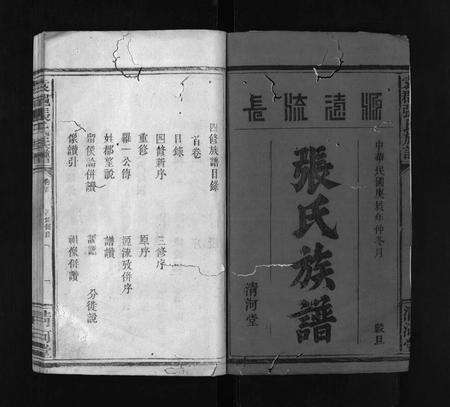 源遠流長
中華民國庚辰年仲冬月
穀旦
張氏族譜
清河堂
四修族譜目錄
首卷
目錄
四修新序
三修序
重修
原序
羅一公傳
源流攷併序
姓郡堂說
譜讚
留侯論併讚
分徙說
像讚引
祖像併讚
清河堂